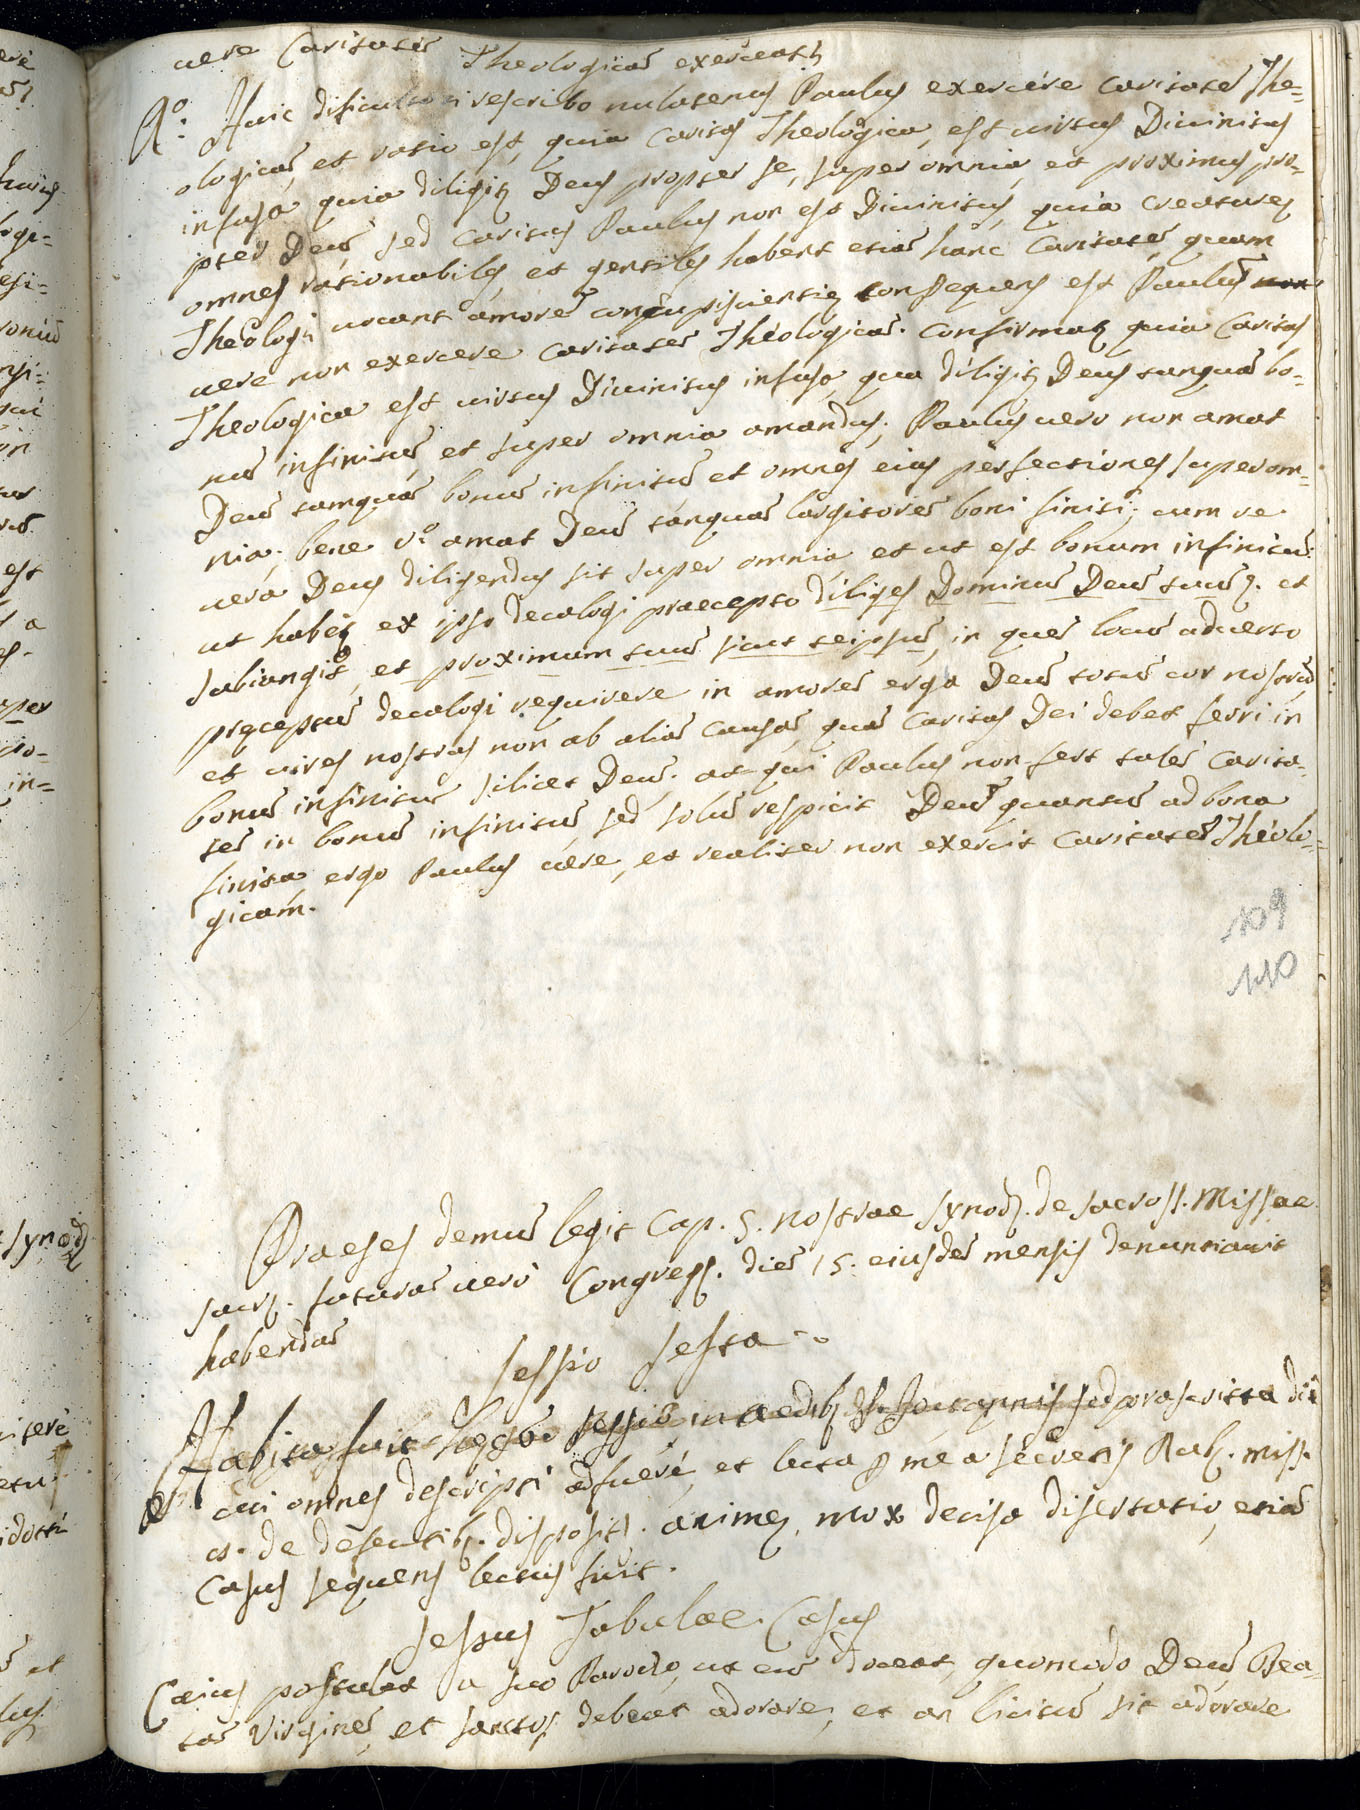 uere Caritatē Theologicā exerceat;
R.º: Huic dificultati rescribo nulatenus Paulus exercére caritatē The=
ologicā, et ratio est, quia caritas Theologica, est uirtus Diuinitus
infusa, quia diligit Deus propter se, super omnia, et proximus pro-
pter Deū, sed caritas Paulus non est Diuinitus, quia creatures
omnes rationabiles, et gentiles habent etiā hanc Caritatē, quam
Theologi uocant amorē concupiscientie, consequens est Paulū
uere non exercere caritatē Theologicā. Confirmat; quia Caritas
Theologica est uirtus Diuinitus infusa, qua diligit Deus tanquā bo-
nū infinitū, et super omnia amandus; Paulus uero non amat
Deū tamquā bonū infinitū et omnes eius perfectiones super om-
nia; bene v.º amat Deū tánquā largitorē boni finiti; cum re
uera Deus diligendus sit super omnia, et ut est bonum infinitū:
ut habet ex ipso decalogi praecepto diliges Dominū Deū tuū. et
subiungit, et proximum tuū sicut teipsū, in quē locū aduerto
preceptū decalogi requirere in amorē erga Deū totū cor nostrū
et uires nostras non ab aliā causā, quā Caritas Dei debet ferri in
bonū infinitū silicet Deū; at qui Paulus non fert talē Carita-
tē in bonū infinitū sed solū respicit Deū quantū ad bona
finita, ergo Paulus uere, et realiter non exercit caritatē Theolo-
gicam.
109
110
Praeses demū legit Cap. 5. nostrae synod. de sacross. Missae
sacr. futurā uerò Congreg. diē 15. eiusdē mensis denuntiauit
habendā
Sessio Sesta
Habita fuit praescritta die
cui omnes descripti adfueré, et lecta p me a secretis Rub. miss.
a. de defectib. disposit. animę, mox decisa disertatio, etiā
Casus sequens lectus fuit.
Sestus Tabulae Casus
Caius postulat a suo Parocho, ut eū doceat, quomodo Deū Bea-
tā Virginē, et sanctos debeat adorare; et an licitū sit adorare